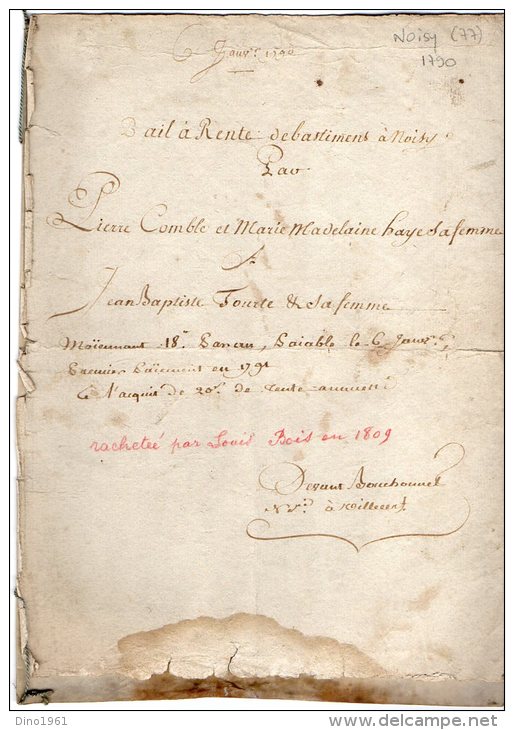 6 Janv.r 1790
Noisy (77)
1790
Bail à Rente de bastiment à Noisy
Par
Pierre Comble et Marie Madelaine haye Sa femme
A
Jean Baptiste Tourte & Sa femme
Moïennant 18# Par an, Païable le 6 Janv.r,
Premier Païement en 1791
rachetée par Louis Bois en 1809
Devant Bouchonnet
N.re à
Dino1961
www.delcampe.net